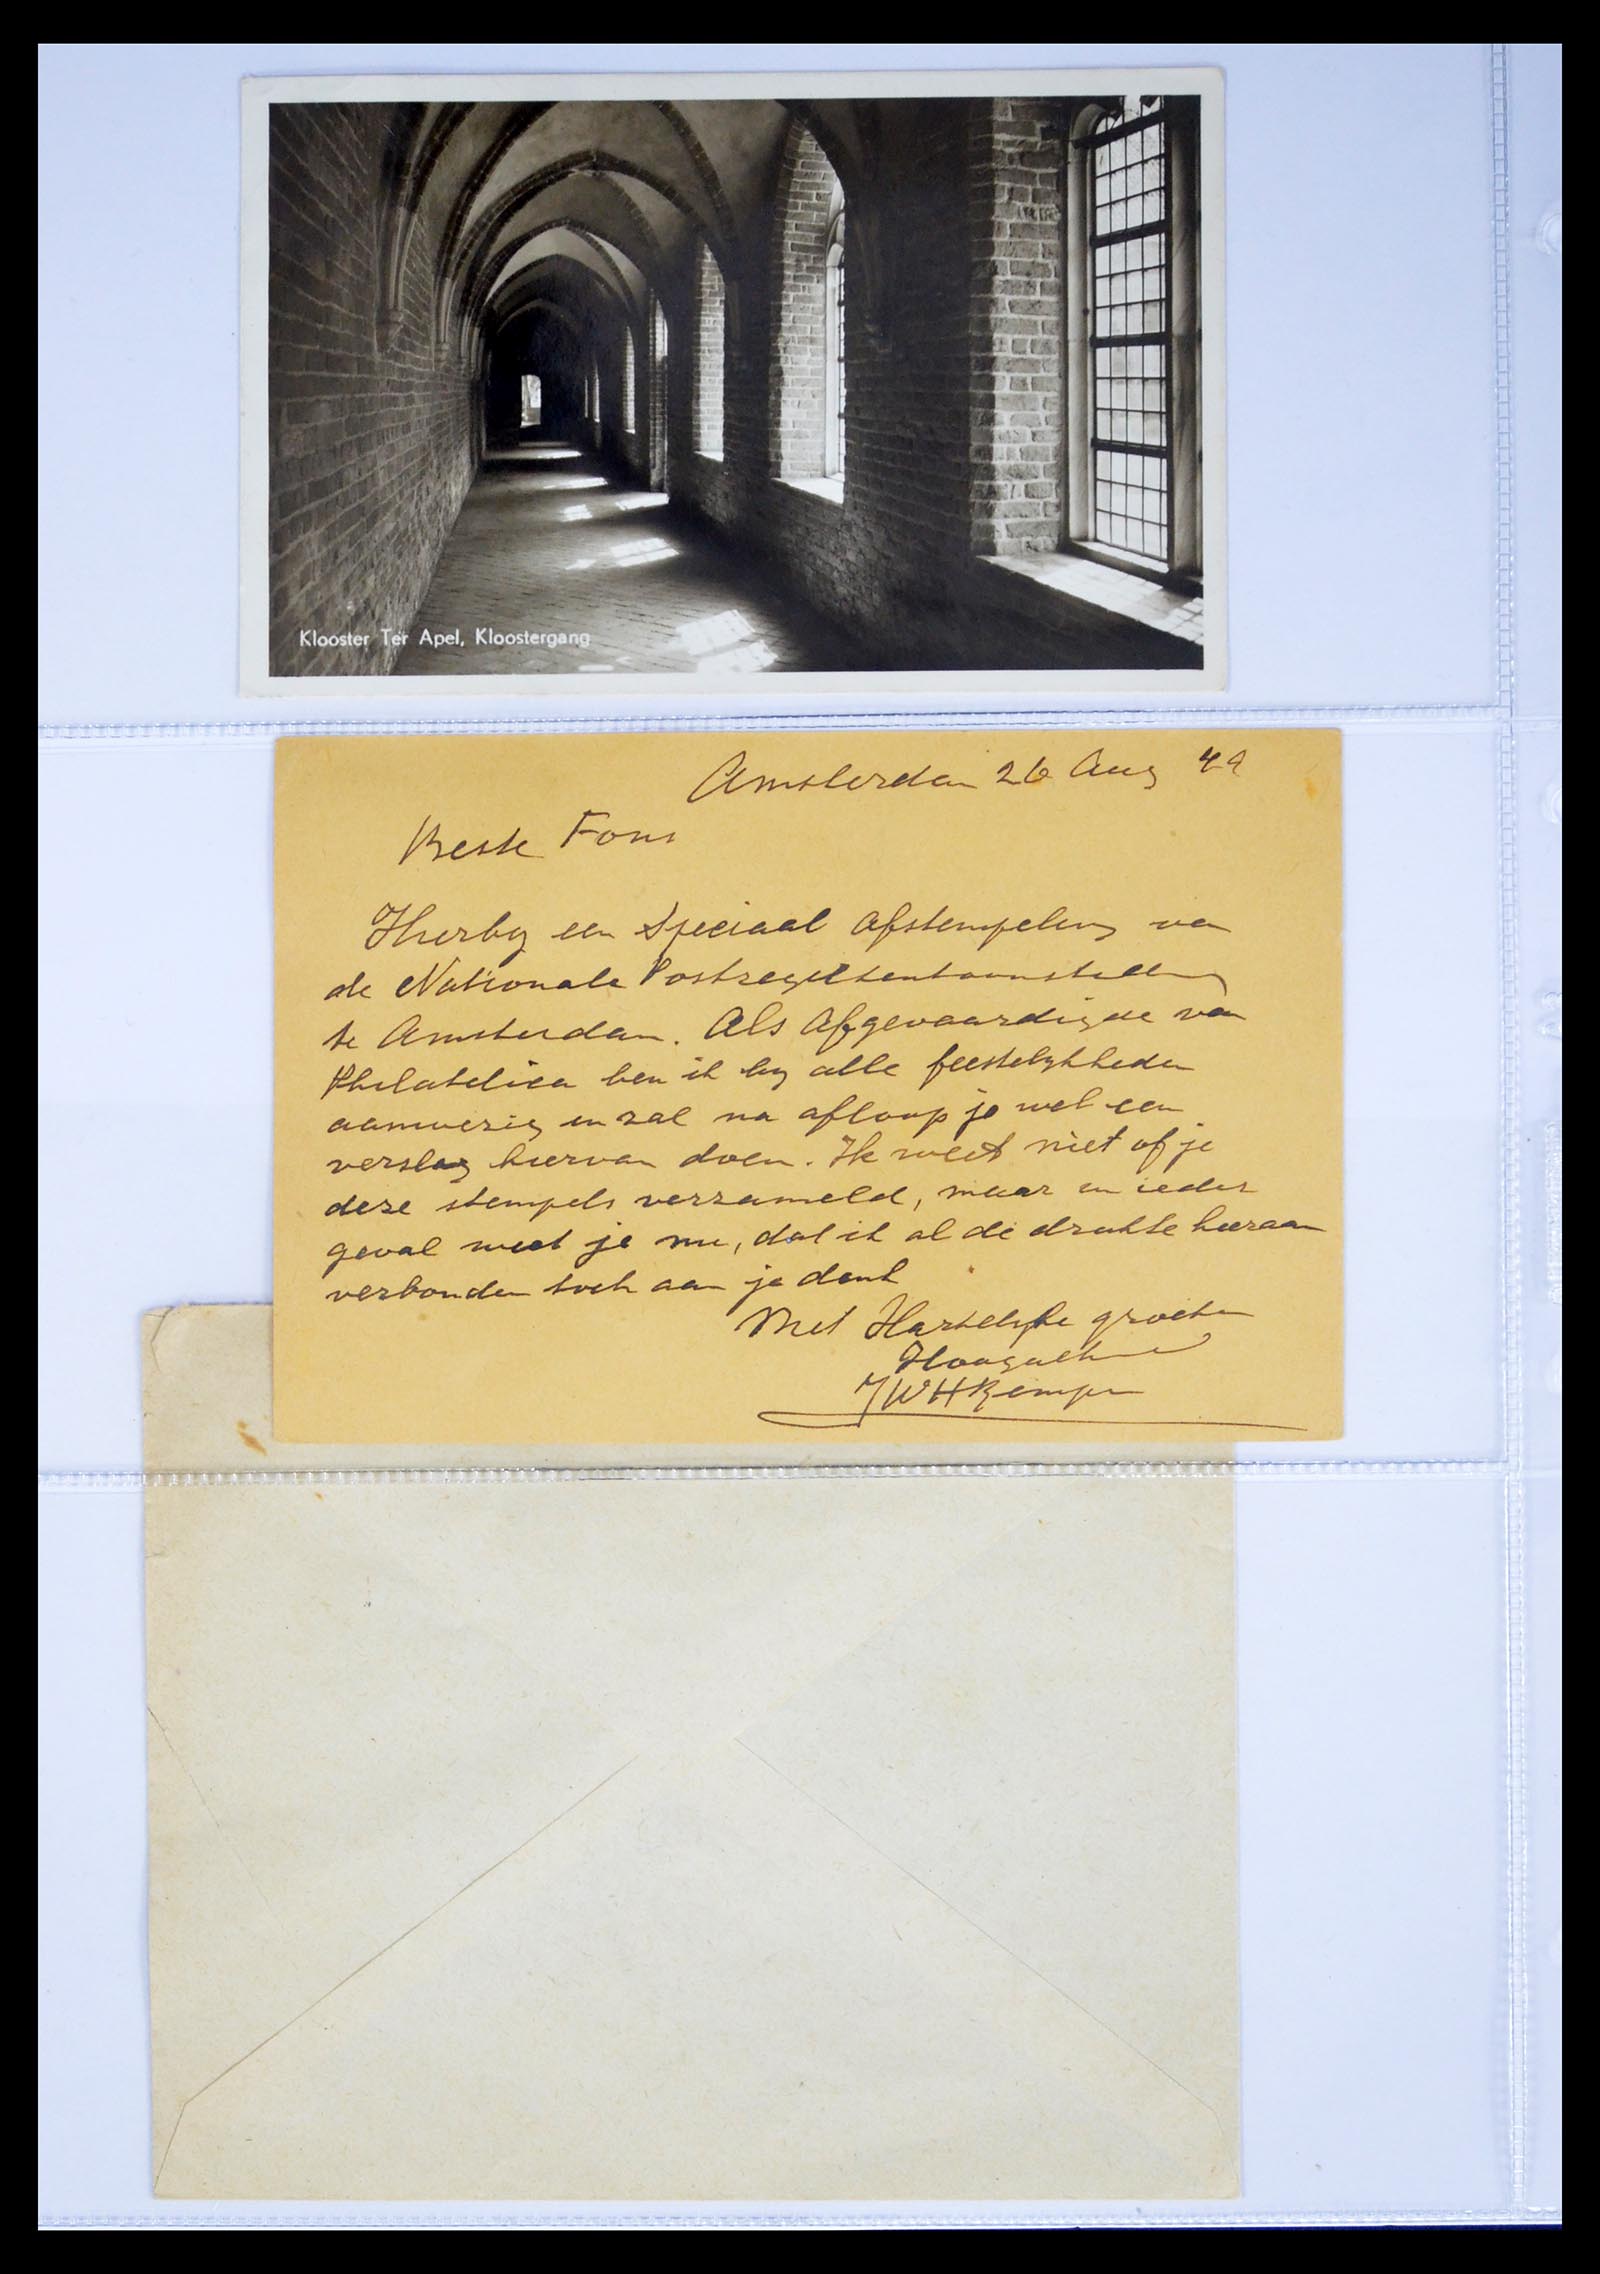 Klooster Ter Apel, Kloostergang
Amsterdam 26 Aug 49
Beste Fons
Hierby een Speciaal afstempeling van
de Nationale Postzegeltentoonstelling
te Amsterdam. Als Afgevaardigde van
Philatelica ben ik by alle feestelykheden
aanwezig en zal na afloop je wel een
verslag hiervan doen. Ik weet niet of je
deze stempels verzameld, maar in ieder
geval weet je nu, dat ik al de drukte hieraan
verbonden toch aan je denk
Met Hartelyke groeten
Hoogacht
JWH Kemper